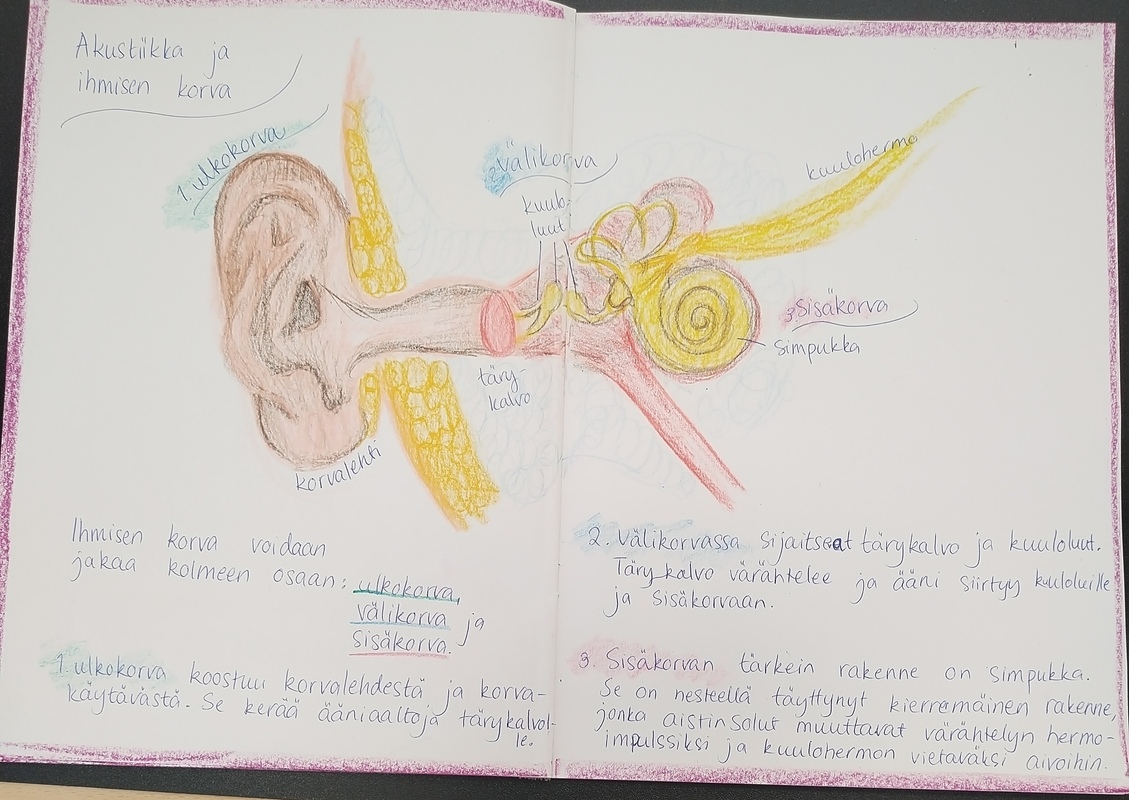 Akustiikka ja
ihmisen korva
1. ulkokorva
2. välikorva
kuulo-
luut
kuulohermo
3. Sisäkorva
Simpukka
täry-
kalvo
korvalehti
Ihmisen korva voidaan
jakaa kolmeen osaan: ulkokorva,
välikorva ja
Sisäkorva.
1. ulkokorva koostuu korvalehdestä ja korva-
käytävästä. Se kerää ääniaaltoja tärykalvol-
le.
2. Välikorvassa Sijaitsevat tärykalvo ja kuuloluut.
Tärykalvo värähtelee ja ääni Siirtyy kuuloluille
ja Sisäkorvaan.
3. Sisäkorvan tärkein rakenne on Simpukka.
Se on nesteellä täyttynyt kierremäinen rakenne,
jonka aistinsolut muuttavat värähtelyn hermo-
impulssiksi ja kuulohermon vietäväksi aivoihin.